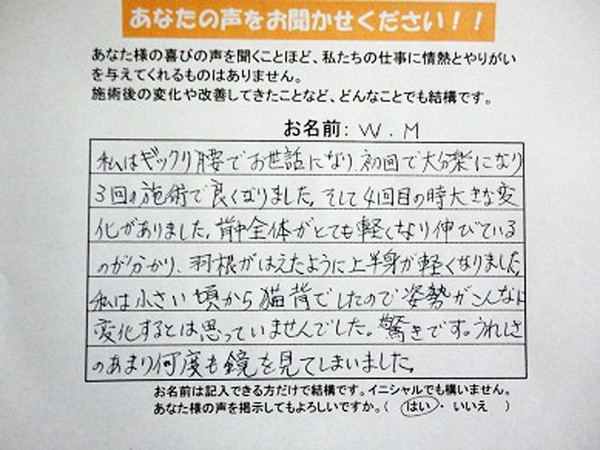 あなたの声をお聞かせください！！
あなた様の喜びの声を聞くことほど、私たちの仕事に情熱とやりがい
を与えてくれるものはありません。
施術後の変化や改善してきたことなど、どんなことでも結構です。
お名前：W．M
私はギックリ腰でお世話になり、初回で大分楽になり
3回の施術で良くなりました。そして4回目の時大きな変
化がありました。背中全体がとても軽くなり伸びている
のが分かり、羽根がはえたように上半身が軽くなりました。
私は小さい頃から猫背でしたので姿勢がこんなに
変化するとは思っていませんでした。驚きです。うれしさ
のあまり何度も鏡を見てしまいました。
お名前は記入できる方だけで結構です。イニシャルでも構いません。
あなた様の声を掲示してもよろしいですか。（ はい ・ いいえ ）